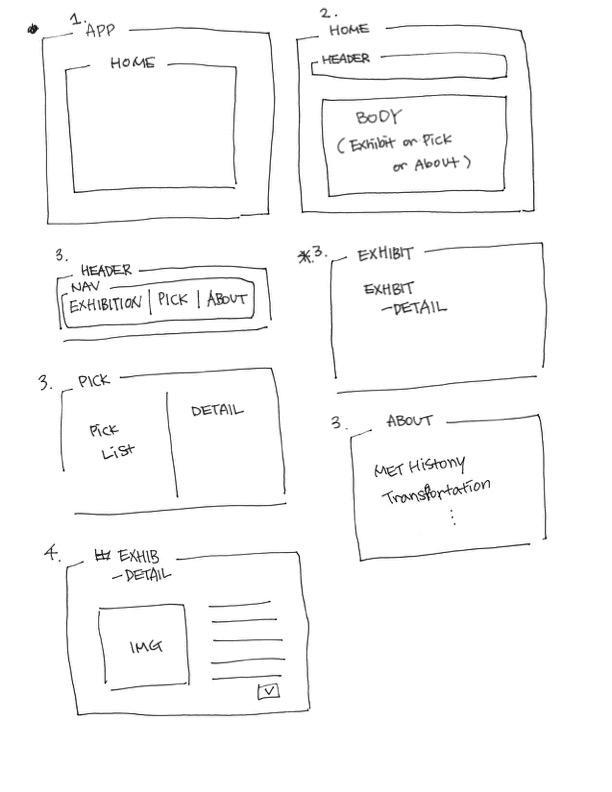 1.
APP
HOME
2.
HOME
HEADER
BODY
(Exhibit or Pick
or About)
3.
HEADER
NAV
EXHIBITION | PICK | ABOUT
*3.
EXHIBIT
EXHBIT
-DETAIL
3.
PICK
Pick
List
DETAIL
3.
ABOUT
MET History
Transportation
⋮
4.
EXHIB
-DETAIL
IMG